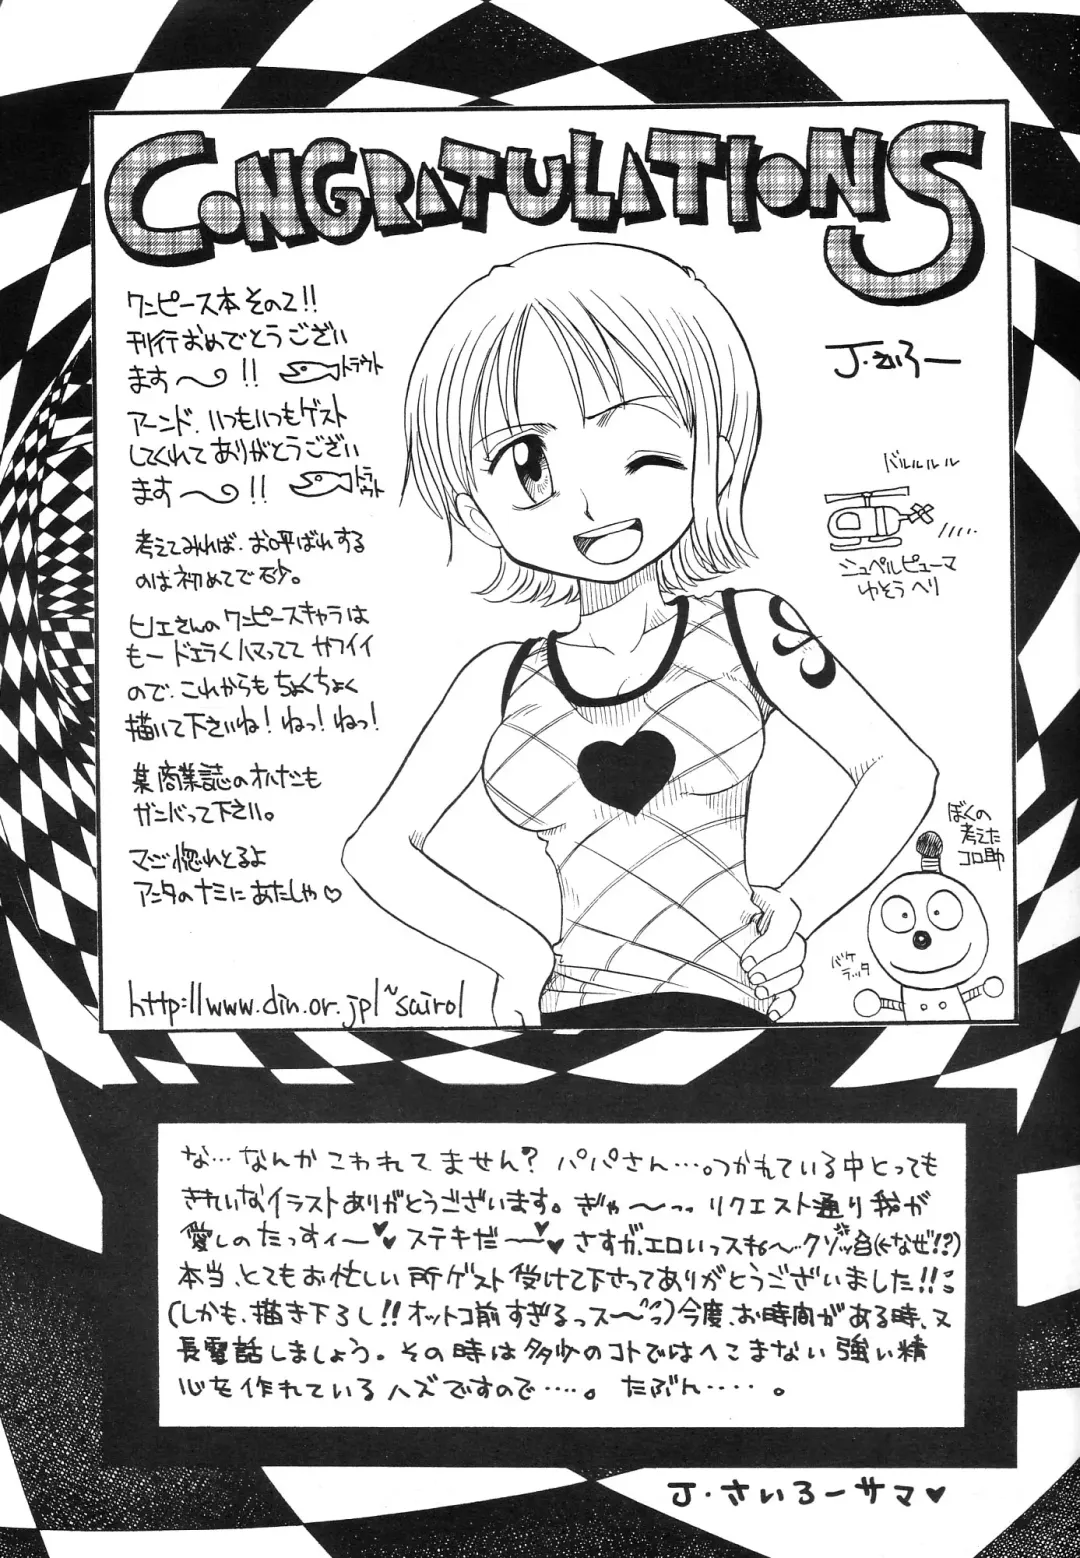 CONGRATULATIONS
ワンピース本 その2!!
刊行おめでとうござい
ます〜!!
トラウト
アーンド、いつもいつもゲスト
してくれてありがとうござい
ます〜!!
トラウト
考えてみれば、お呼ばれする
のは初めてで砂。
ヒノエさんのワンピースキャラは
もードエラくハマってて カワイイ
ので、これからも ちょくちょく
描いて下さいね! ねっ! ねっ!
某商業誌のオルだも
ガンバって下さい。
マジ惚れとるよ
アンタのナミにあたしゃ♡
http://www.din.or.jp/~sairol
J・さいろー
バルルルル
シュペルピューマ
ゆそうヘリ
ぼくの
考えた
コロ助
バケ
ラッタ
な…なんか こわれてません? パパさん…。つかれている中とっても
きれいなイラストありがとうございます。ぎゃ〜っ リクエスト通り我が
愛しのたっすィ〜♥ ステキだ〜♥ さすが、エロいっスね〜 クソッ(←なぜ!?)
本当、とてもお忙しい所ゲスト受けて下さってありがとうございました!!
(しかも、描き下ろし!! オットコ前すぎるっス〜)今度、お時間がある時、又
長電話しましょう。その時は多少のコトではへこまない強い精
心を作れているハズですので……。たぶん……。
J・さいろーサマ♥